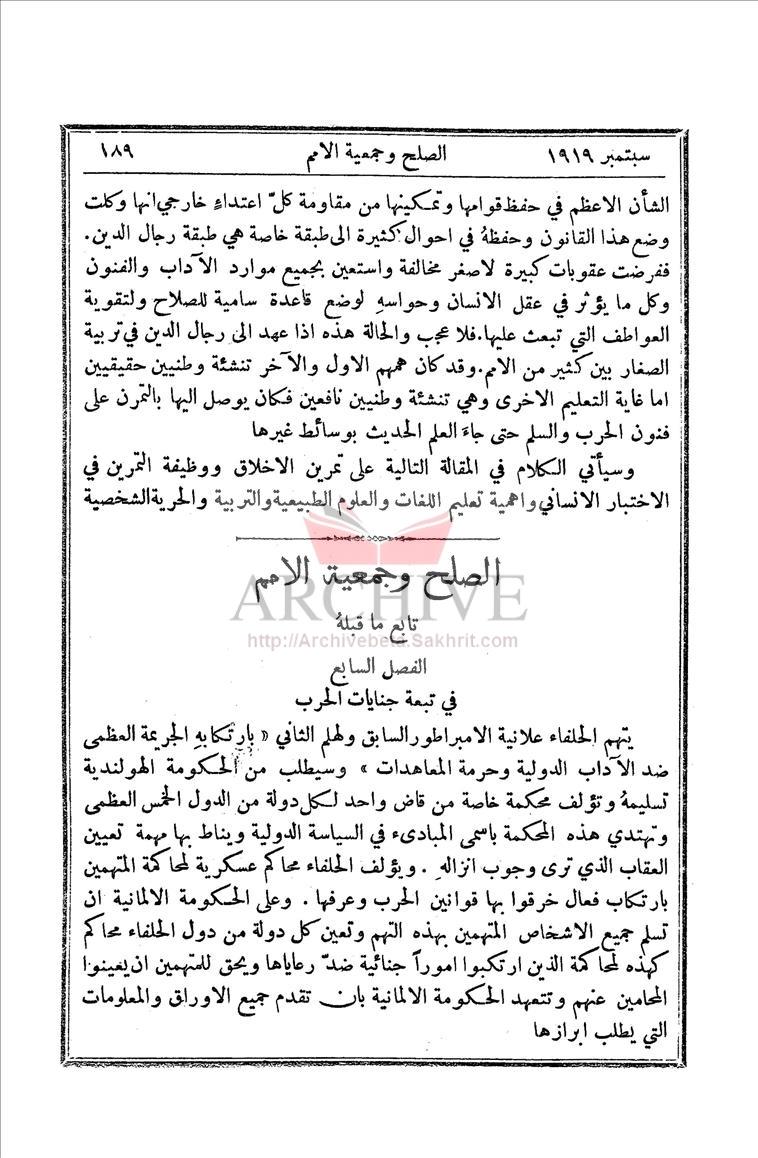 سبتمبر ١٩١٩ الصلح وجمعية الامم ١٨٩
الشأن الاعظم في حفظ قوامها وتمكينها من مقاومة كلّ اعتداءٍ خارجي انها وكلت
وضع هذا القانون وحفظهُ في احوال كثيرة الى طبقة خاصة هي طبقة رجال الدين.
ففرضت عقوبات كبيرة لاصغر مخالفة واستعين بجميع موارد الآداب والفنون
وكل ما يؤثر في عقل الانسان وحواسهِ لوضع قاعدة سامية للصلاح ولتقوية
العواطف التي تبعث عليها. فلا عجب والحالة هذه اذا عهد الى رجال الدين في تربية
الصغار بين كثير من الامم. وقد كان همهم الاول والآخر تنشئة وطنيين حقيقيين
اما غاية التعليم الاخرى وهي تنشئة وطنيين نافعين فكان يوصل اليها بالتمرن على
فنون الحرب والسلم حتى جاءَ العلم الحديث بوسائط غيرها
وسيأتي الكلام في المقالة التالية على تمرين الاخلاق ووظيفة التمرين في
الاختبار الانساني واهمية تعليم اللغات والعلوم الطبيعية والتربية والحرية الشخصية
الصلح وجمعية الامم
ARCHIVE
تابع ما قبلهُ
http://Archivebeta.Sakhrit.com
الفصل السابع
في تبعة جنايات الحرب
يتهم الحلفاء علانية الامبراطور السابق ولهلم الثاني « بارتكابهِ الجريمة العظمى
ضد الآداب الدولية وحرمة المعاهدات » وسيطلب من الحكومة الهولندية
تسليمهُ وتؤلف محكمة خاصة من قاض واحد لكل دولة من الدول الخمس العظمى
وتهتدي هذه المحكمة باسمى المبادىء في السياسة الدولية ويناط بها مهمة تعيين
العقاب الذي ترى وجوب انزالهِ . ويؤلف الحلفاء محاكم عسكرية لمحاكمة المتهمين
بارتكاب فعال خرقوا بها قوانين الحرب وعرفها . وعلى الحكومة الالمانية ان
تسلم جميع الاشخاص المتهمين بهذه التهم وتعين كل دولة من دول الحلفاء محاكم
كهذه لمحاكمة الذين ارتكبوا اموراً جنائية ضدّ رعاياها ويحق للمتهمين ان يعينوا
المحامين عنهم وتتعهد الحكومة الالمانية بان تقدم جميع الاوراق والمعلومات
التي يطلب ابرازها